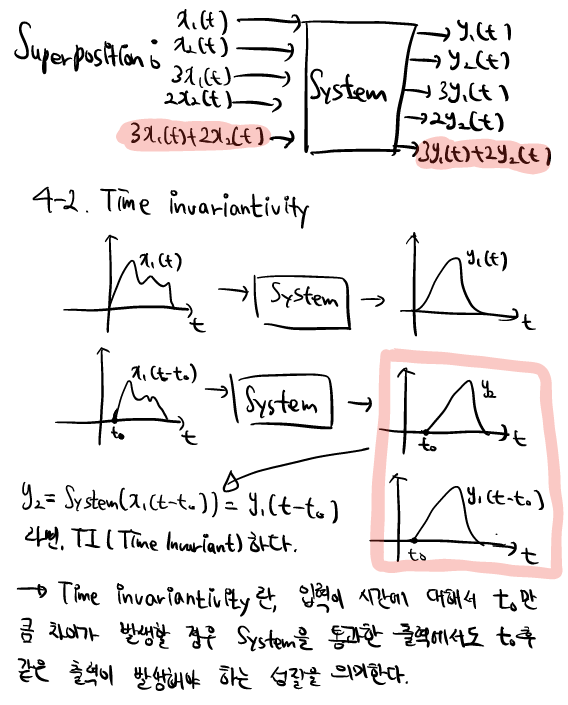 Superposition:
x₁(t)
x₂(t)
3x₁(t)
2x₂(t)
3x₁(t)+2x₂(t)
System
y₁(t)
y₂(t)
3y₁(t)
2y₂(t)
3y₁(t)+2y₂(t)
4-2. Time invariantivity
x₁(t)
t
System
y₁(t)
t
x₁(t-t₀)
t₀
t
System
y₂
t₀
t
y₂ = System(x₁(t-t₀)) = y₁(t-t₀)
라면, TI (Time Invariant)하다.
y₁(t-t₀)
t₀
t
→ Time invariantivity란, 입력이 시간에 대해서 t₀만
큼 차이가 발생할 경우 System을 통과한 출력에서도 t₀후
같은 출력이 발생해야 하는 성질을 의미한다.